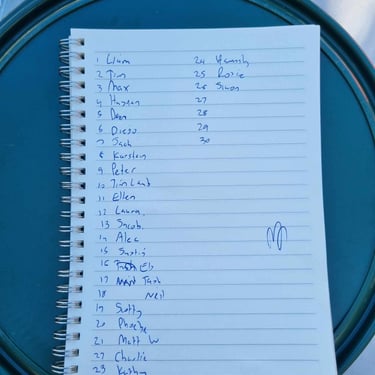 1 Liam
2 Tim
3 Max
4 Hayden
5 Dean
6 Diego
7 Sach
8 Karsten
9 Peter
10 Tim
11 Ellen
12 Laura.
13 Jacob.
14 Alec
15
16 Eli
17 Tash
18 Neil
19 Scotty
20 Phoebe
21 Matt W
22 Charlie
23
24 Hamish
25 Rosie
26 Simon
27
28
29
30